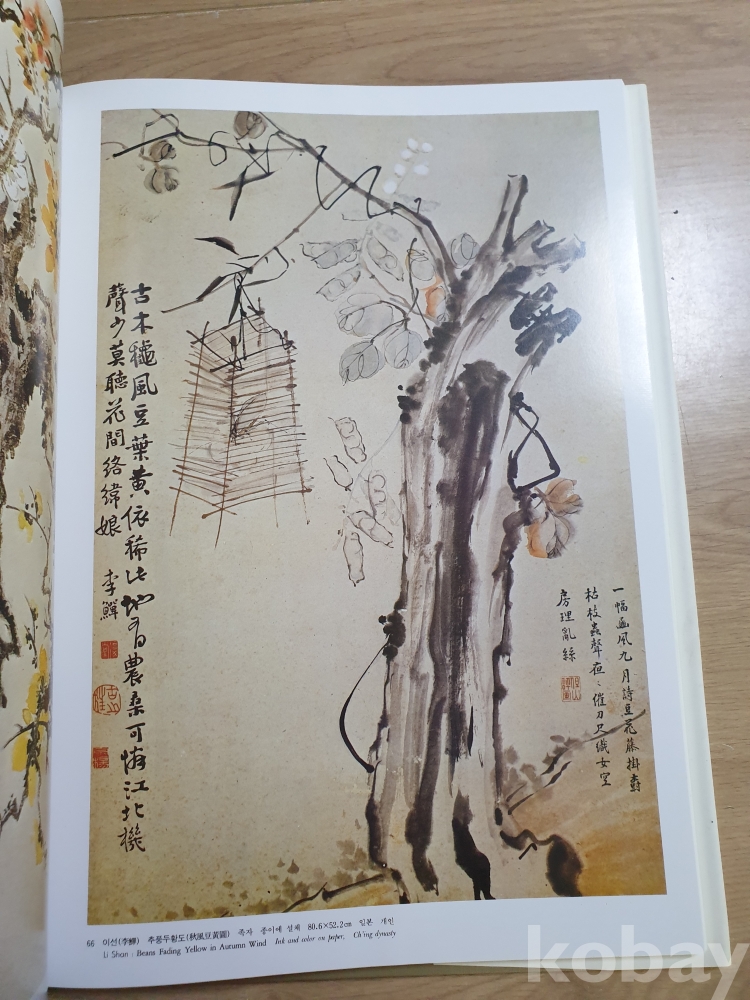 古木穐風豆葉黃依稀此地有農桑可憐江北機
聲少莫聽花間絡緯娘 李鱓
一幅豳風九月詩豆花藤掛樹
枯枝蟲聲夜〻催刀尺織女空
房理亂絲
66 이선(李鱓) 추풍두황도(秋風豆黃圖) 족자 종이에 설채 80.6×52.2cm 일본 개인
Li Shan : Beans Fading Yellow in Autumn Wind Ink and color on paper, Ch'ing dynasty
kobay